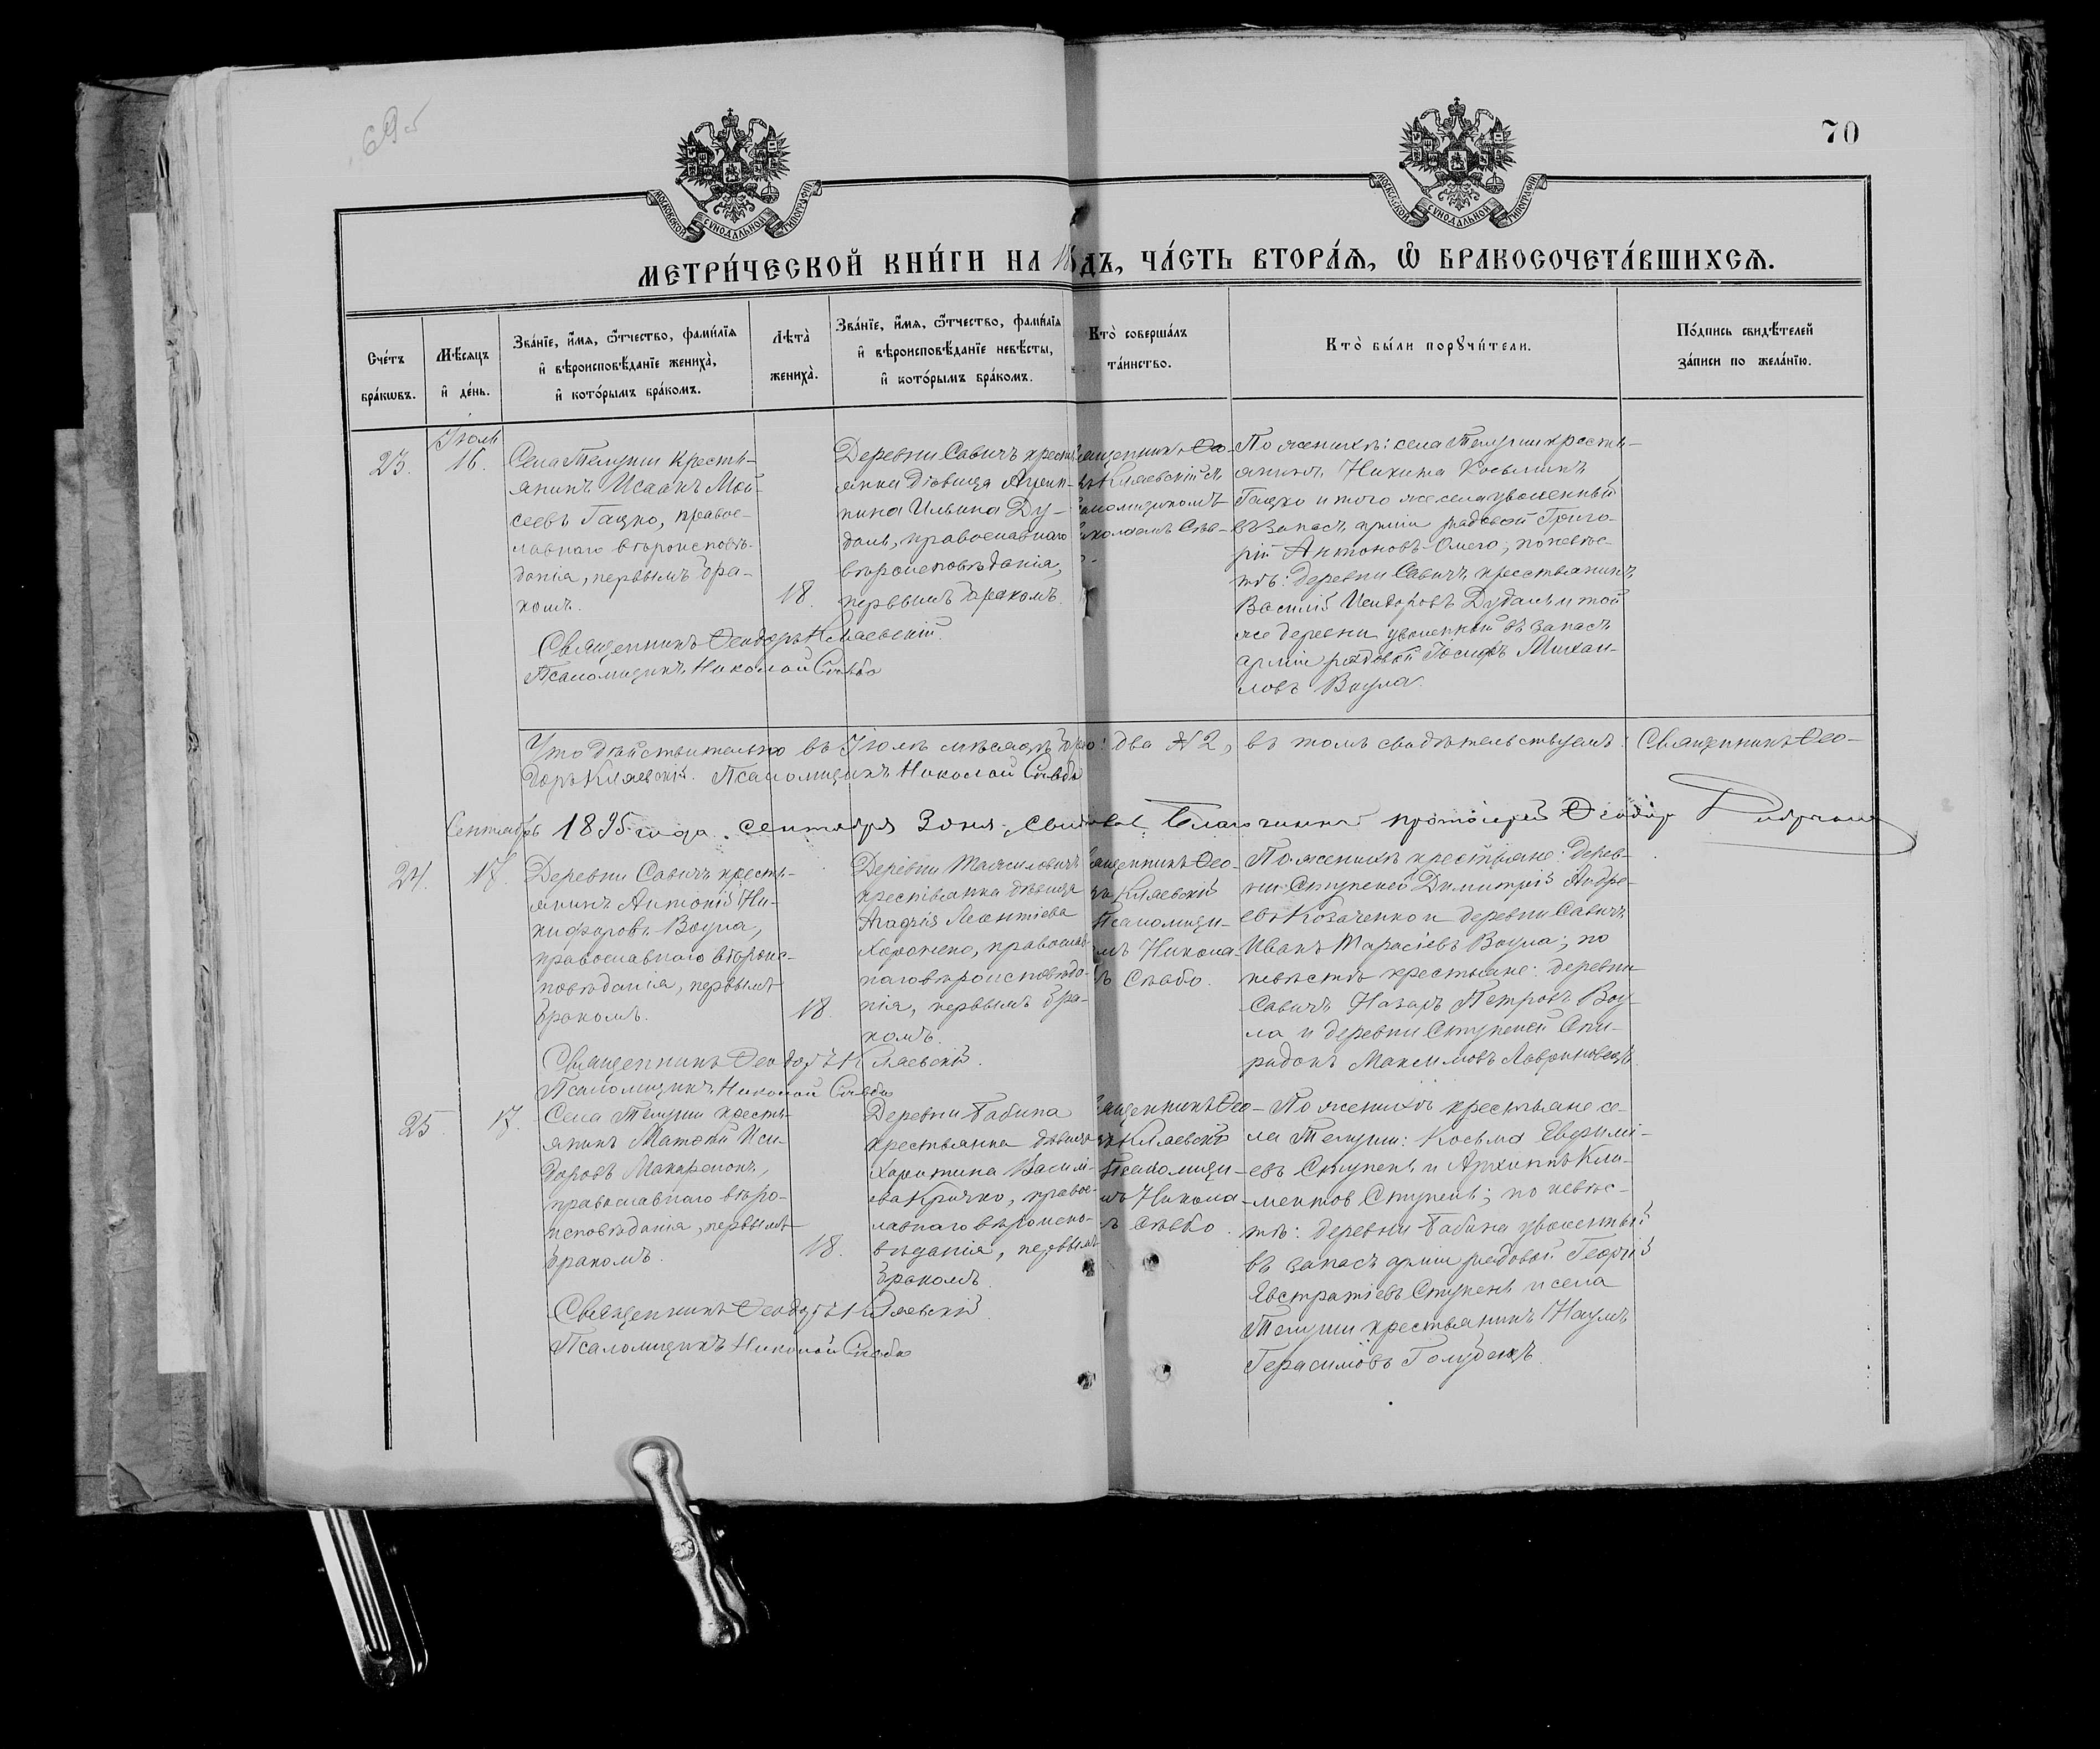 69об
70
МОСКОВСКОЙ СУНОДАЛЬНОЙ ТИПОГРАФІИ
МОСКОВСКОЙ СУНОДАЛЬНОЙ ТИПОГРАФІИ
МЕТРИ́ЧЕСКОЙ КНИ́ГИ НА 18 ДЪ, ЧА́СТЬ ВТОРА́Ѧ, Ѡ҆ БРАКОСОЧЕТА́ВШИХСѦ.
Сче́тъ бра́кѡвъ.
Мѣ́сѧцъ и҆ де́нь.
Зва́нїе, и҆́мѧ, ѻ҆́тчество, фами́лїѧ
и҆ вѣроисповѣ́данїе жениха̀,
и҆ кото́рымъ бра́комъ.
Лѣта̀ жениха̀.
Зва́нїе, и҆́мѧ, ѻ҆́тчество, фами́лїѧ
и҆ вѣроисповѣ́данїе невѣ́сты,
и҆ кото́рымъ бра́комъ.
Кто̀ соверша́лъ
та́инство.
Кто̀ бы́ли порꙋчи́тели.
По́дпись свидѣ́телей
за́писи по жела́нїю.
23.
Іюль
16.
Села Телуши кресть-
янинъ Исаакъ Мои-
сеевъ Гацко, правос-
лавнаго вѣроисповѣ-
данія, первымъ бра-
комъ.
18.
Деревни Савичъ кресть
янка дѣвица
Ильина Ду-
даль, православнаго
вѣроисповѣданія,
первымъ бракомъ.
ященникъ Ѳео-
ъ Кляевскій съ
аломщикомъ
иколаемъ Слѣ-
По женихѣ: села Телуши кресть-
янинъ Никита Косьминъ
Гацко и того же села уволенный
въ запасъ арміи рядовой Григо-
рій Антоновъ Омего; по невѣс-
тѣ: деревни Савичъ крестьянинъ
Василій Исидоровъ Дудаль и той
же деревни уволенный въ запасъ
арміи рядовой Іосифъ Михаи-
ловъ Воула.
Священникъ Ѳеодоръ Кляевскій.
Псаломщикъ Николай Слѣбо
Что дѣйствительно въ Іюлѣ мѣсяцѣ два № 2, въ томъ свидѣтельствуемъ: Священникъ Ѳео-
доръ Кляевскій. Псаломщикъ Николай Слѣбо
1895 года. сентября 3 дня. Благочинный протоіерей Ѳеодоръ
Сентябрь
24.
17.
Деревни Савичъ кресть-
янинъ Антоній Ни-
кифоровъ Воула,
православнаго вѣроис-
повѣданія, первымъ
бракомъ.
18.
Деревни
крестьянка дѣвица
Агафія Леонтіева
православ-
наго вѣроисповѣда-
нія, первымъ бра-
комъ.
ященникъ Ѳео-
ъ Кляевскій
Псаломщи-
мъ Никола-
ъ Слѣбо.
По женихѣ крестьяне: дерев-
ни Ступеней Димитрій Андре-
евъ Козаченко и деревни Савичъ
Иванъ Тарасіевъ Воула; по
невѣстѣ крестьяне: деревни
Савичъ Назаръ Петровъ Воу-
ла и деревни Ступеней Спи-
ридонъ Максимовъ Лавриновецъ.
Священникъ Ѳеодоръ Кляевскій.
Псаломщикъ Николай Слѣбо
25.
17.
Села Телуши кресть-
янинъ Матѳій Иси-
доровъ Макаренокъ,
православнаго вѣро-
исповѣданія, первымъ
бракомъ.
18.
Деревни Бабина
крестьянка дѣвица
Харитина Василі-
ева Кричко, правос-
лавнаго вѣроиспо-
вѣданія, первымъ
бракомъ.
ященникъ Ѳео-
ъ Кляевскій
Псаломщи-
мъ Никола-
ъ Слѣбо.
По женихѣ крестьяне се-
ла Телуши: Косьма Евфимі-
евъ Ступень и Архиппъ Кли-
ментовъ Ступень; по невѣс-
тѣ: деревни Бабина уволенный
въ запасъ арміи рядовой Георгій
Евстратіевъ Ступень и села
Телуши крестьянинъ Наумъ
Герасимовъ Голубокъ.
Священникъ Ѳеодоръ Кляевскій
Псаломщикъ Николай Слѣбо